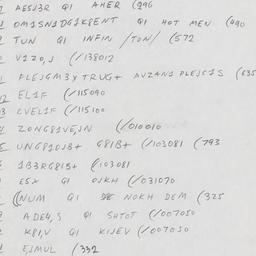 AESJ3R QI AHER (996
OM1SN1DG1ERENT QI HOT MEN (490
TUN QI INFIN /TON/ (572
V1ZO,J (/138012
PLEJGM3Y TRUG+ AVZAND PLEJC1S (635
EL1F (/115090
CVEL1F (/115100
ZONG81VEJN (/010010
UNG81DJB+ G8IB+ (/103081 (793
1B3RG8IB+ (103081
ESX QI OJKH (/031070
(NUM QI NOKH DEM (325
ADE4,S QI SHTOT (/007050
K8I,V QI KIJEV (/007050
EJMUL (332